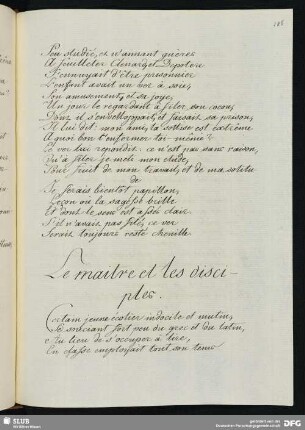 185
Peu studieux et n'aimant guères
A feuilleter Clenard et Despotere
S'ennuyait d'être prisonnier
L'enfant avait un ver à soie,
Son amusement, et sa joye,
Un jour le regardant à filer son cocon,
Dont il s'enveloppait, et faisait sa prison,
Il lui dit: mon ami, ta sottise est extreme
A quoi bon t'enfermer toi-même?
Le ver lui repondit: ce n'est pas sans raison,
Qu'à filer je mets mon etude,
Pour fruit de mon travail, et de ma solitu
de
Je serais bientot papillon,
Leçon où la sagesse brille
Et dont le sens est assez clair
S'il n'avait pas filé, ce ver
Serait toujours resté chenille.
Le maitre et les disci-
ples.
Certain jeune écolier indocile et mutin,
Se souciant fort peu du grec et du latin,
Au lieu de s'occuper à lire,
En classe employait tout son tems
SLUB
DFG